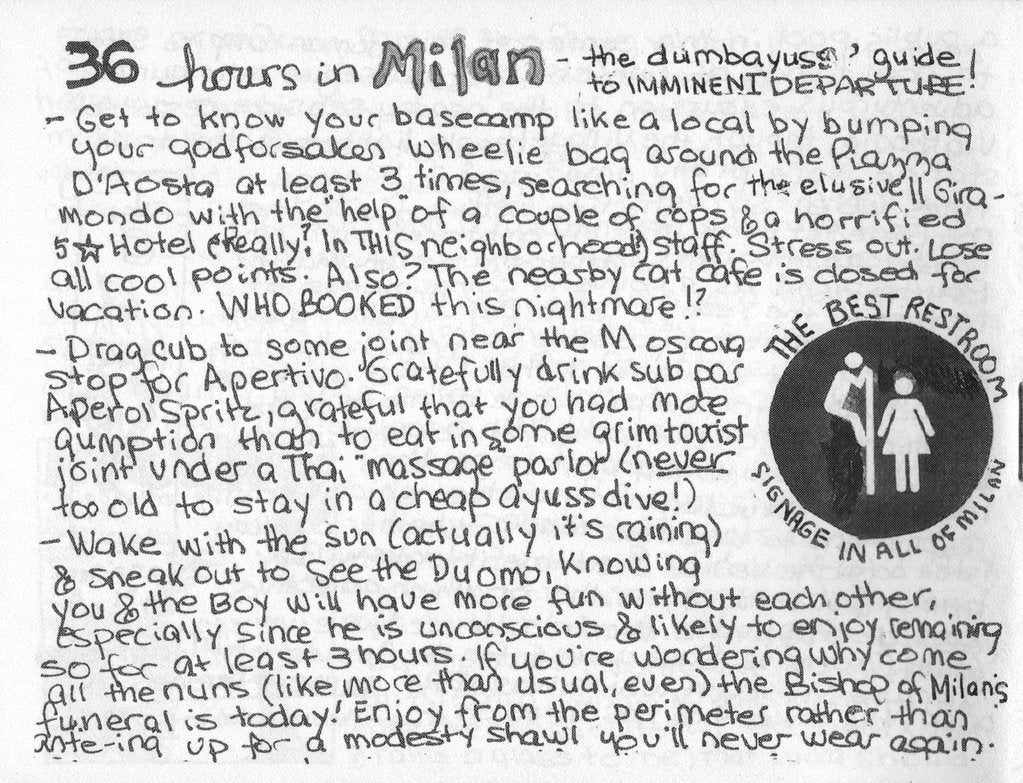 36 hours in Milan - the dumbayuss' guide
to IMMINENT DEPARTURE!
- Get to know your basecamp like a local by bumping
your godforsaken wheelie bag around the Piazza
D'Aosta at least 3 times, searching for the elusive Il Gira-
mondo with the "help" of a couple of cops & a horrified
5☆ Hotel (Really? In THIS neighborhood?) staff. Stress out. Lose
all cool points. Also? The nearby cat cafe is closed for
vacation. WHO BOOKED this nightmare!?
- Drag cub to some joint near the Moscova
stop for Apertivo. Gratefully drink sub par
Aperol Spritz, grateful that you had more
gumption than to eat in some grim tourist
joint under a Thai "massage" parlor (never
too old to stay in a cheap ayuss dive!)
THE BEST RESTROOM
SIGNAGE IN ALL OF MILAN
- Wake with the sun (actually it's raining)
& sneak out to see the Duomo, knowing
you & the Boy will have more fun without each other,
especially since he is unconscious & likely to enjoy remaining
so for at least 3 hours. If you're wondering why come
all the nuns (like more than usual, even) the Bishop of Milan's
funeral is today! Enjoy from the perimeter rather than
ante-ing up for a modesty shawl you'll never wear again.